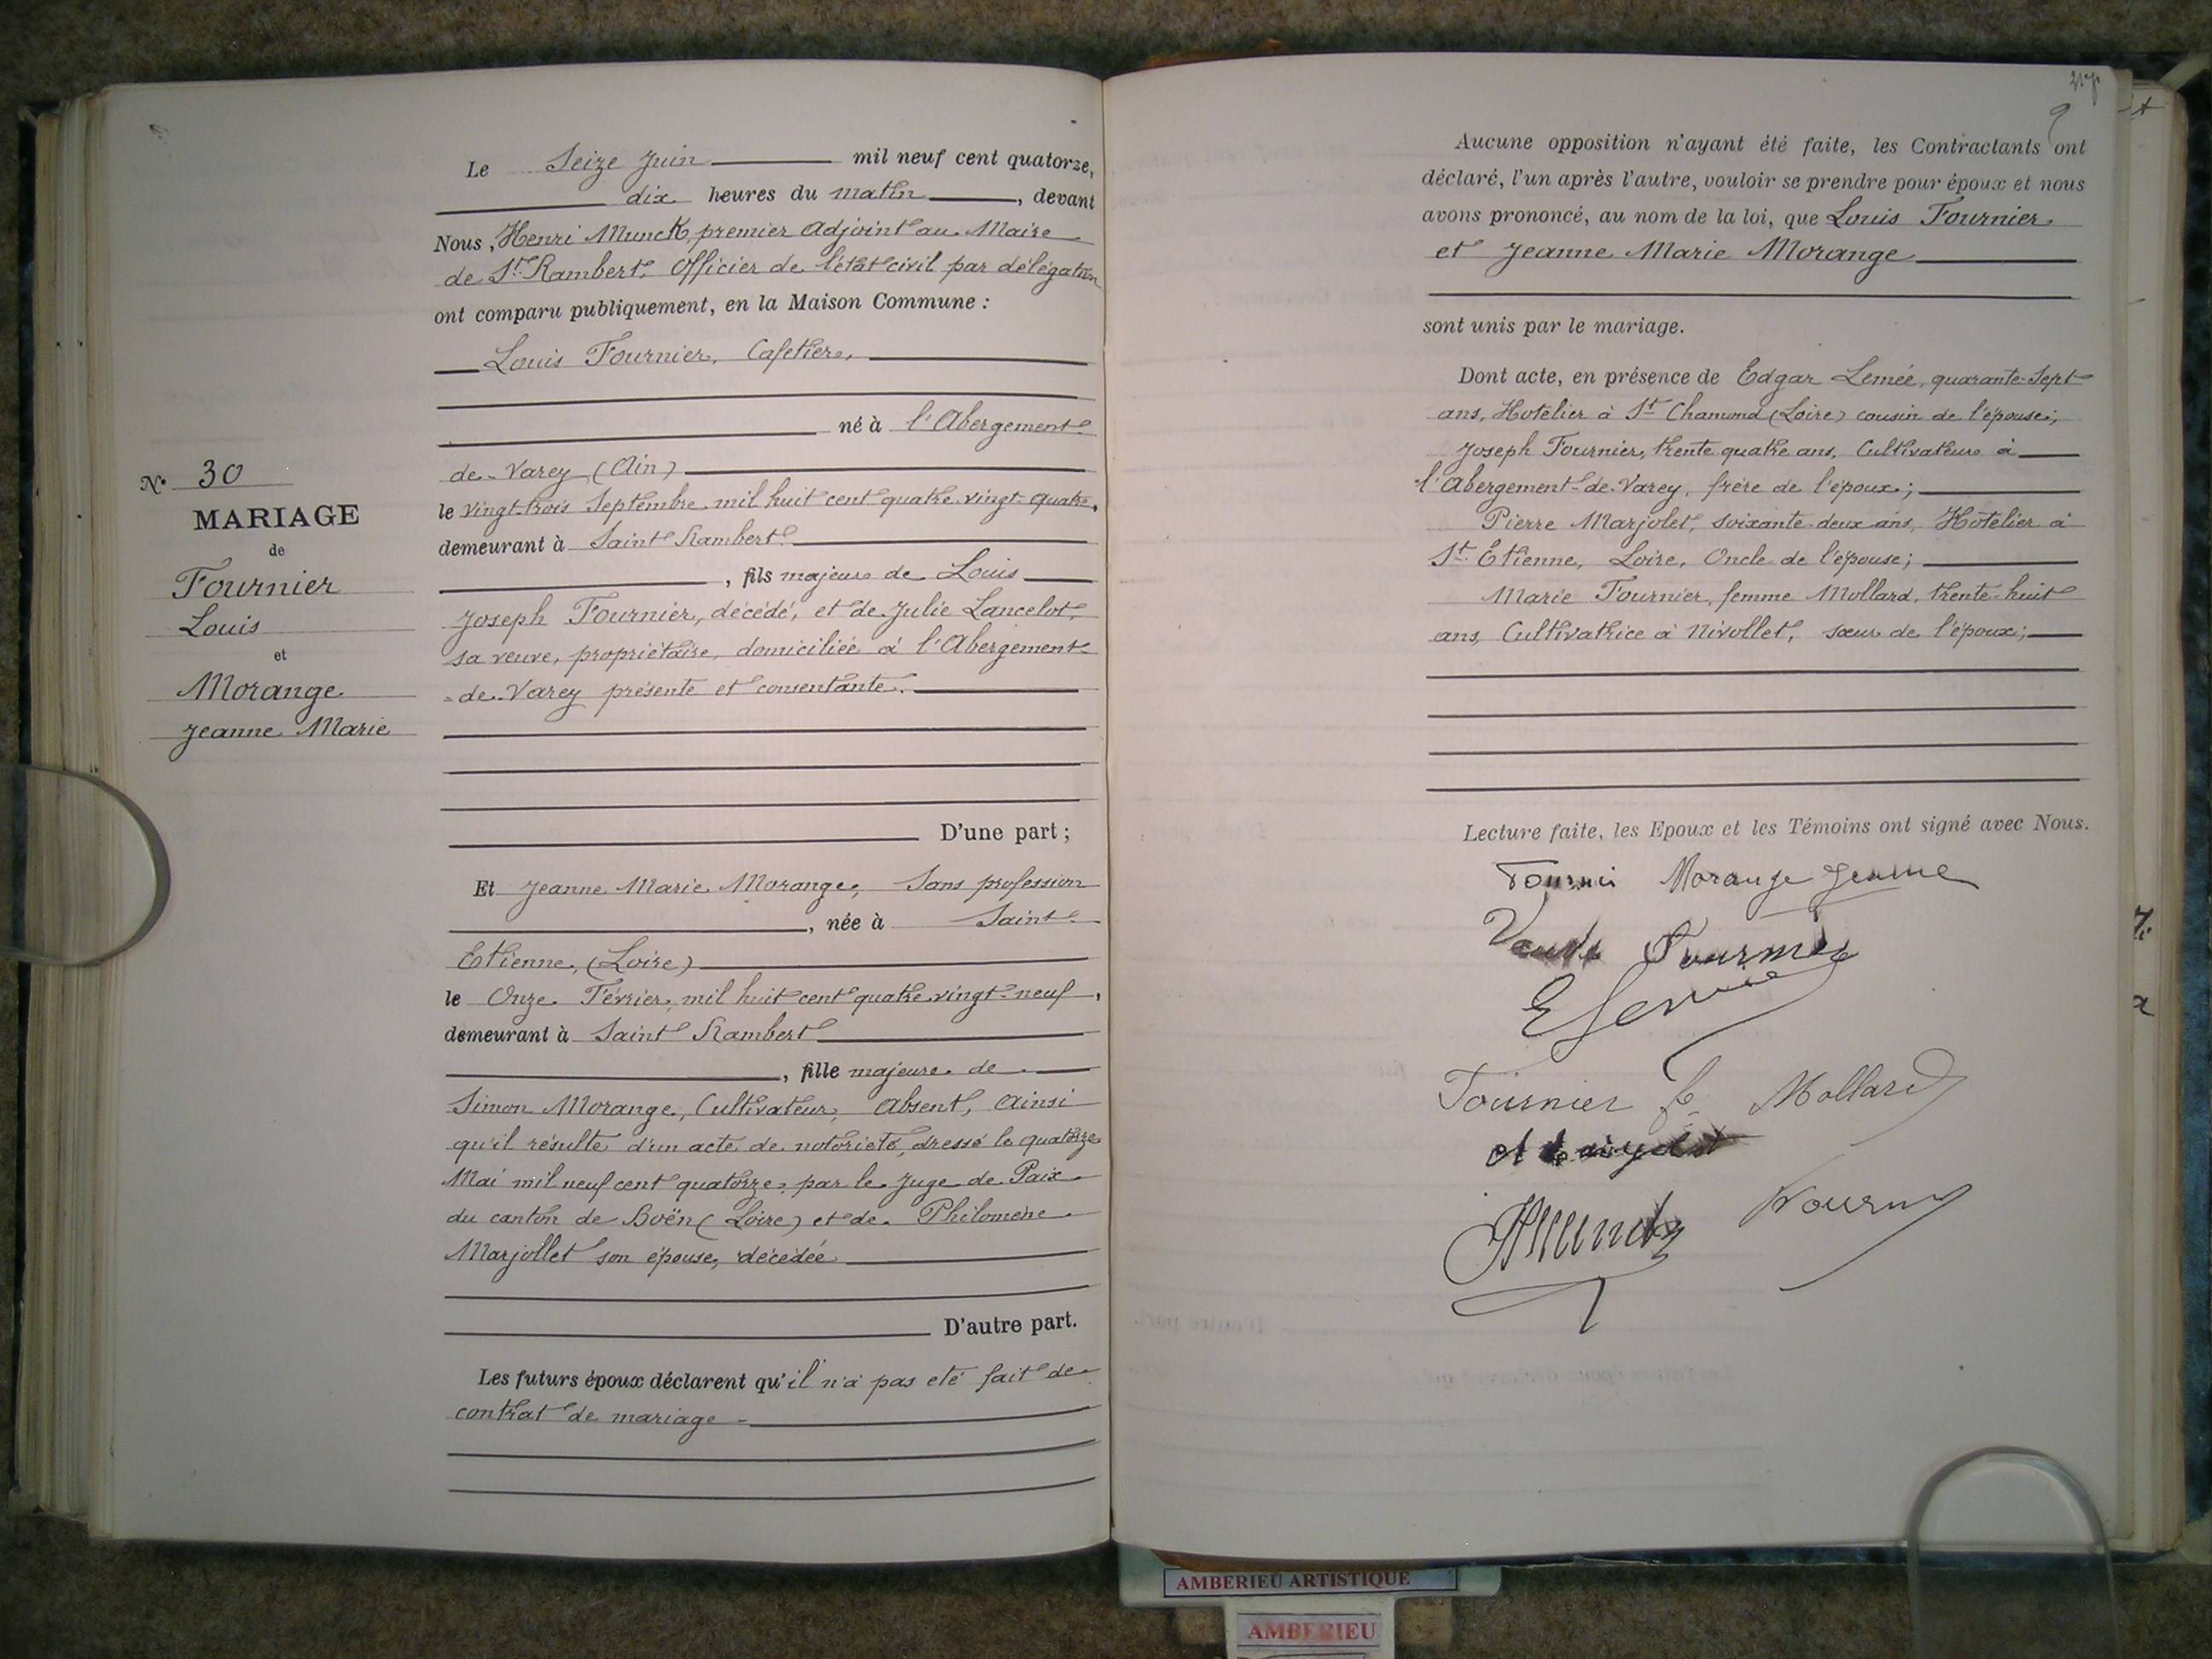 Le Seize Juin mil neuf cent quatorze,
dix heures du matin, devant
Nous, Henri Munck, premier Adjoint au Maire
de St. Rambert, Officier de l'état civil par délégation
ont comparu publiquement, en la Maison Commune :
Louis Fournier, Cafetier,
né à l'Abergement-
de-Varey (Ain)
le vingt-trois Septembre mil huit cent quatre-vingt-quatre,
demeurant à Saint Rambert
, fils majeur de Louis
Joseph Fournier, décédé, et de Julie Lancelot,
sa veuve, propriétaire, domiciliée à l'Abergement-
-de-Varey présente et consentante.
D'une part ;
N° 30
MARIAGE
de
Fournier
Louis
et
Morange
Jeanne Marie
Et Jeanne Marie Morange, Sans profession
, née à Saint-
Etienne, (Loire)
le Onze Février mil huit cent quatre-vingt-neuf,
demeurant à Saint Rambert
, fille majeure de
Simon Morange, Cultivateur, Absent, Ainsi
qu'il résulte d'un acte de notoriété, dressé le quatorze
Mai mil neuf cent quatorze, par le Juge de Paix
du canton de Boën (Loire) et de Philomène
Marjollet son épouse, décédée
D'autre part.
Les futurs époux déclarent qu'il n'a pas été fait de
contrat de mariage -
Aucune opposition n'ayant été faite, les Contractants ont
déclaré, l'un après l'autre, vouloir se prendre pour époux et nous
avons prononcé, au nom de la loi, que Louis Fournier
et Jeanne Marie Morange
sont unis par le mariage.
Dont acte, en présence de Edgar Lemée, quarante-sept
ans, Hotelier à St Chamond (Loire) cousin de l'épouse;
Joseph Fournier, trente quatre ans, Cultivateur à
l'Abergement-de-Varey, frère de l'époux;
Pierre Marjolet, soixante-deux ans, Hôtelier à
St. Etienne, Loire, Oncle de l'épouse;
Marie Fournier, femme Mollard, trente-huit
ans, Cultivatrice à Nivollet, sœur de l'époux;
Lecture faite, les Epoux et les Témoins ont signé avec Nous.
Morange Jeanne
Fournier
Fournier f. Mollard
AMBERIEU ARTISTIQUE
AMBERIEU